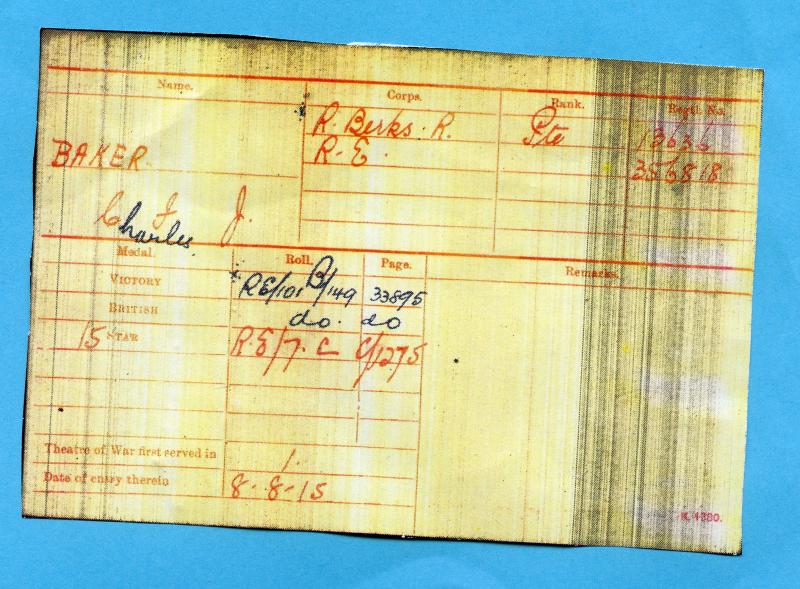 Name. Corps. Rank. Regtl. No.
R. Berks. R. Pte 13636
BAKER R. E. 356818
C F J.
harles
Medal. Roll. Page. Remarks.
VICTORY RE/101 B/149 33895
BRITISH do. do
15 STAR R.E/7.C C/1275
Theatre of War first served in 1.
Date of entry therein 8-8-15
K. 1380.